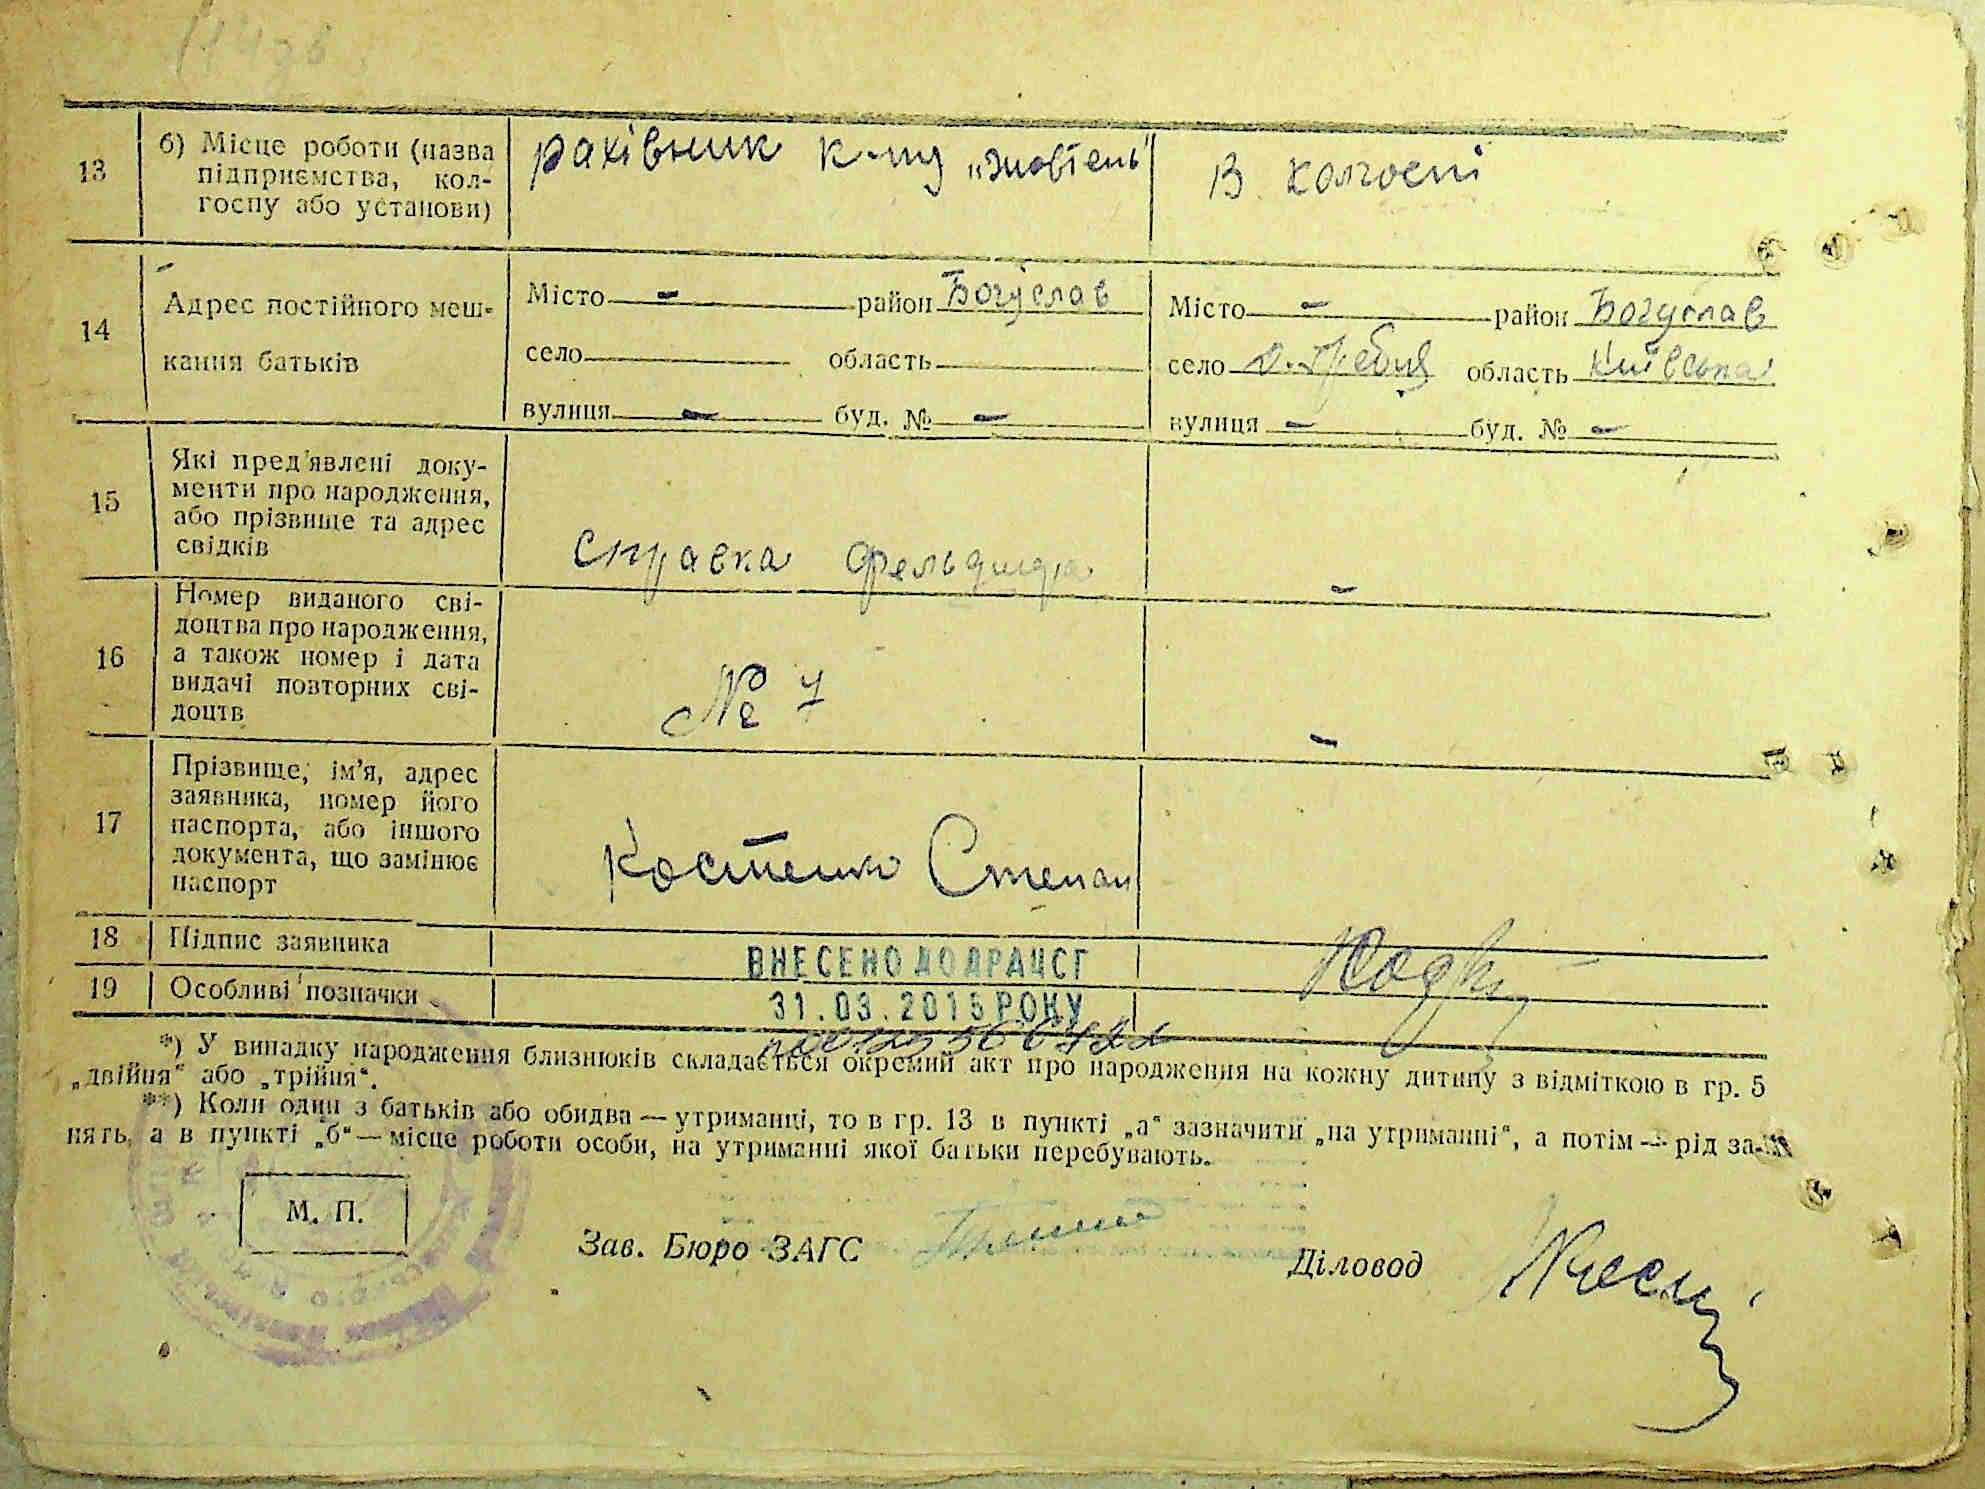 13
б) Місце роботи (назва
підприємства, кол-
госпу або установи)
рахівник к-пу „Жовтень"
В колгоспі
14
Адрес постійного меш-
кання батьків
Місто - район Богуслав
село область
вулиця - буд. № -
Місто - район Богуслав
село область Київська
вулиця - буд. № -
15
Які пред'явлені доку-
менти про народження,
або прізвище та адрес
свідків
Справка фельдшера
-
16
Номер виданого сві-
доцтва про народження,
а також номер і дата
видачі повторних сві-
доцтв
№ 7
-
17
Прізвище, ім'я, адрес
заявника, номер його
паспорта, або іншого
документа, що замінює
паспорт
Костенко Степан
18 Підпис заявника
ВНЕСЕНО ДО ДРАЦСГ
19 Особливі позначки
31.03.2015 РОКУ
*) У випадку народження близнюків складається окремий акт про народження на кожну дитину з відміткою в гр. 5
„двійня" або „трійня".
**) Коли один з батьків або обидва — утриманці, то в гр. 13 в пункті „а" зазначити „на утриманні", а потім — рід за-
нять, а в пункті „б" — місце роботи особи, на утриманні якої батьки перебувають.
М. П.
Зав. Бюро ЗАГС
Діловод